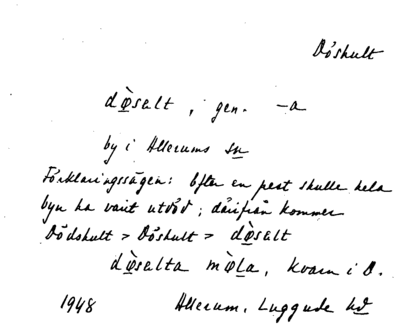 Döshult
dø̀salt, gen. -a
by i Allerums sn
Förklaringssägen: Efter en pest skulle hela
byn ha varit utdöd; därifrån kommer
Dödshult > Döshult > dø̀salt
dø̀salta mø̀la, kvarn i D.
1948 Allerum, Luggude hd